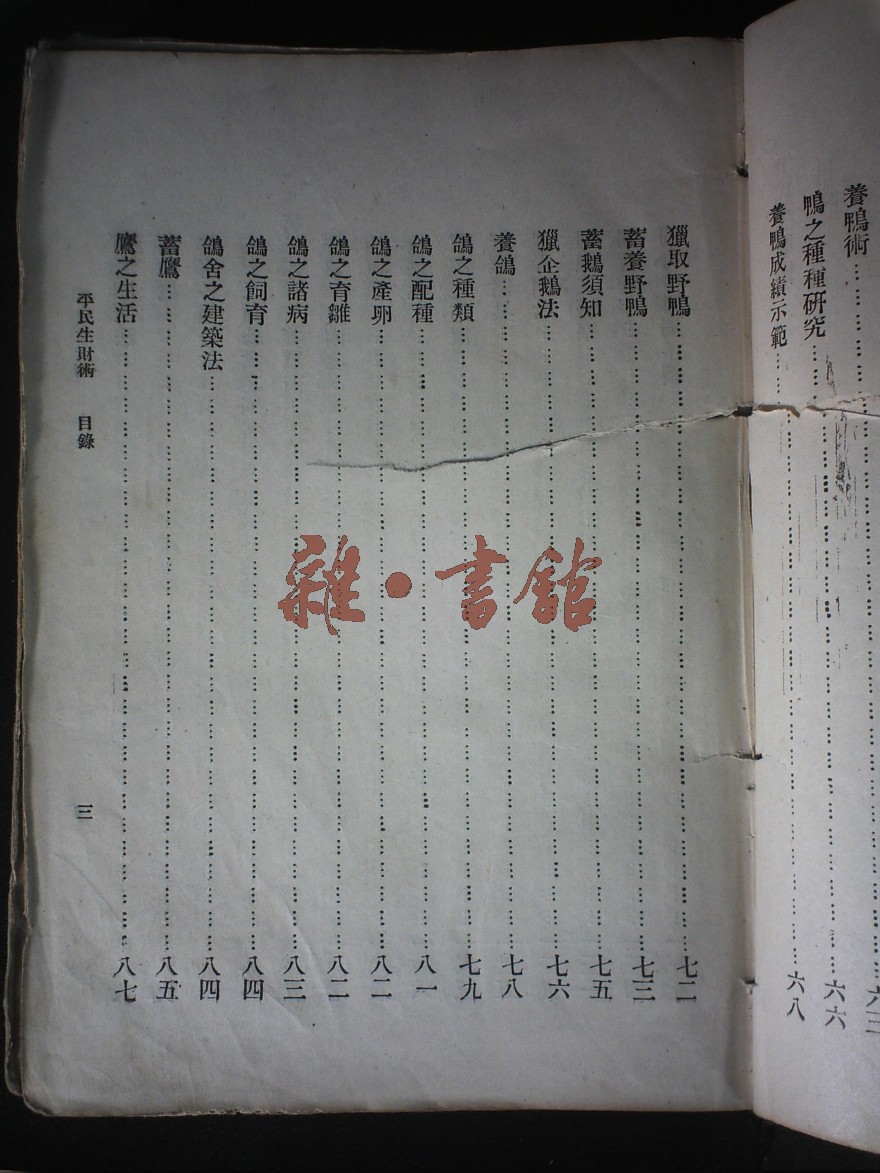 養鴨術……六三
鴨之種種研究……六六
養鴨成績示範……六八
獵取野鴨……七二
蓄養野鴨……七三
蓄鵝須知……七五
獵企鵝法……七六
養鴿……七八
鴿之種類……七九
鴿之配種……八一
鴿之產卵……八二
鴿之育雛……八二
鴿之諸病……八三
鴿之飼育……八四
鴿舍之建築法……八四
蓄鷹……八五
鷹之生活……八七
平民生財術 目錄 三
雜·書館